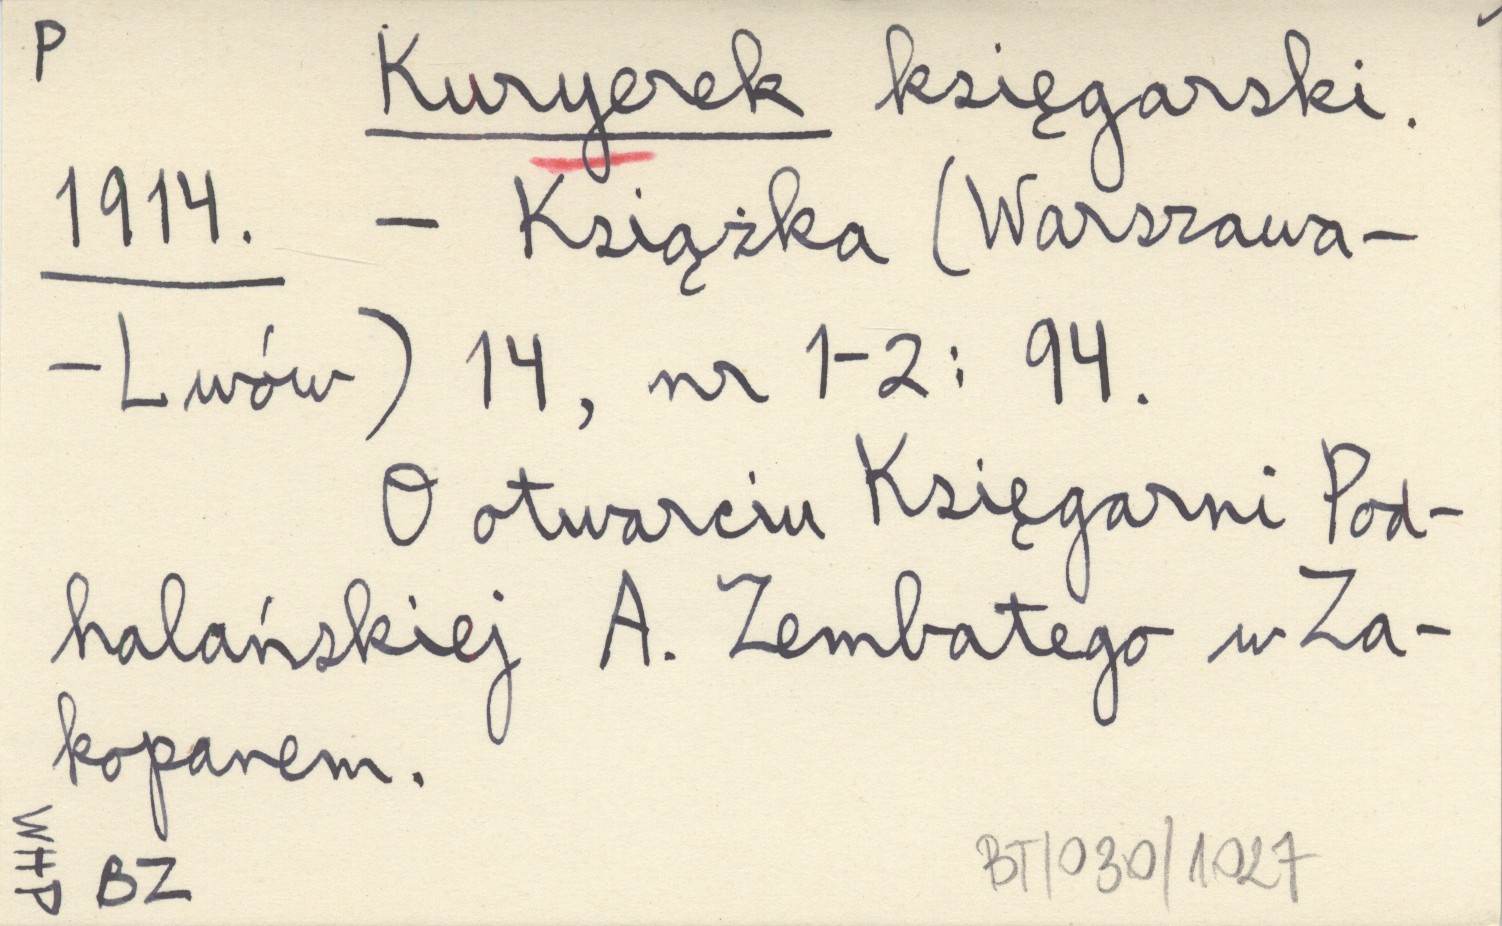 P Kuryerek księgarski.
1914. – Książka (Warszawa-
-Lwów) 14, nr 1-2: 94.
O otwarciu Księgarni Pod-
halańskiej A. Zembatego w Za-
kopanem.
WHP BZ BT/030/1027